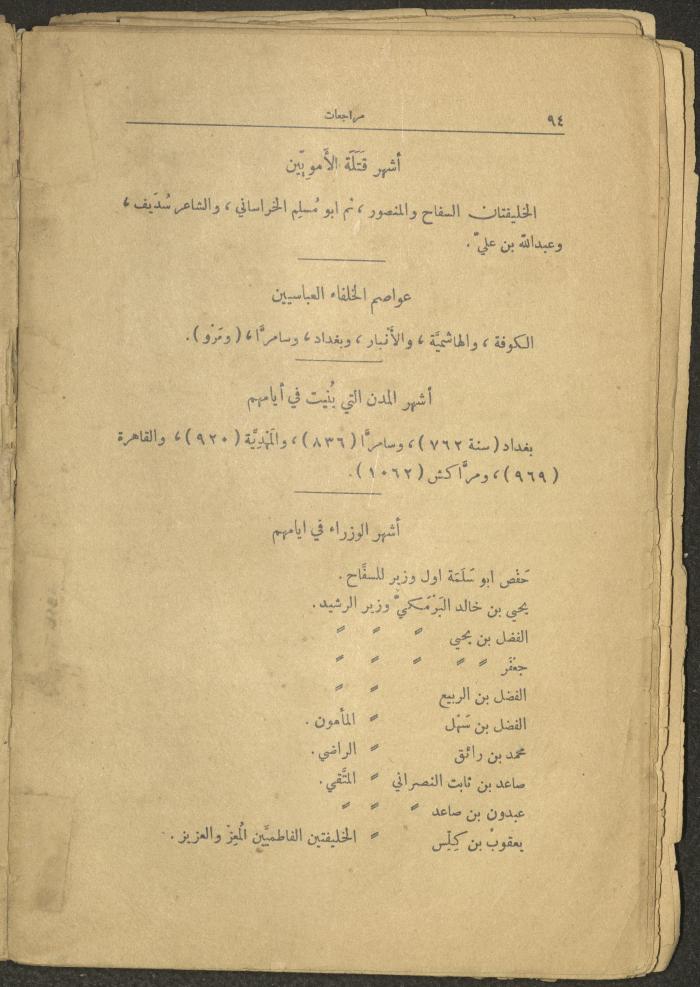 ٩٤
مراجعات
أشهر قَتَلَة الأَمويّين
الخليفتان السفاح والمنصور ، ثم ابو مُسلِم الخراساني ، والشاعر سُدَيف ،
وعبدالله بن عليّ .
عواصم الخلفاء العباسيين
الكوفة ، والهاشميَّة ، والأَنبار ، وبغداد ، وسامرَّا ، ( ومَرْو ) .
أشهر المدن التي بُنيت في أيامهم
بغداد ( سنة ٧٦٢ ) ، وسامرَّا ( ٨٣٦ ) ، والمَهْدِيَّة ( ٩٢٠ ) ، والقاهرة
( ٩٦٩ ) ، ومرَّاكش ( ١٠٦٢ ) .
أشهر الوزراء في ايامهم
حَفْص ابو سَلَمَة اول وزير للسفَّاح .
يحيى بن خالد البَرْمَكيّ وزير الرشيد .
الفضل بن يحيى 〃 〃 〃
جعْفَر 〃 〃 〃 〃 〃
الفضل بن الربيع 〃 〃
الفضل بن سَهْل 〃 المأمون .
محمد بن رائق 〃 الراضي .
صاعد بن ثابت النصراني 〃 المتَّقي .
عبدون بن صاعد 〃 〃 〃
يعقوبْ بن كِلِّس 〃 الخليفتين الفاطميَّين المُعِزّ والعزيز .